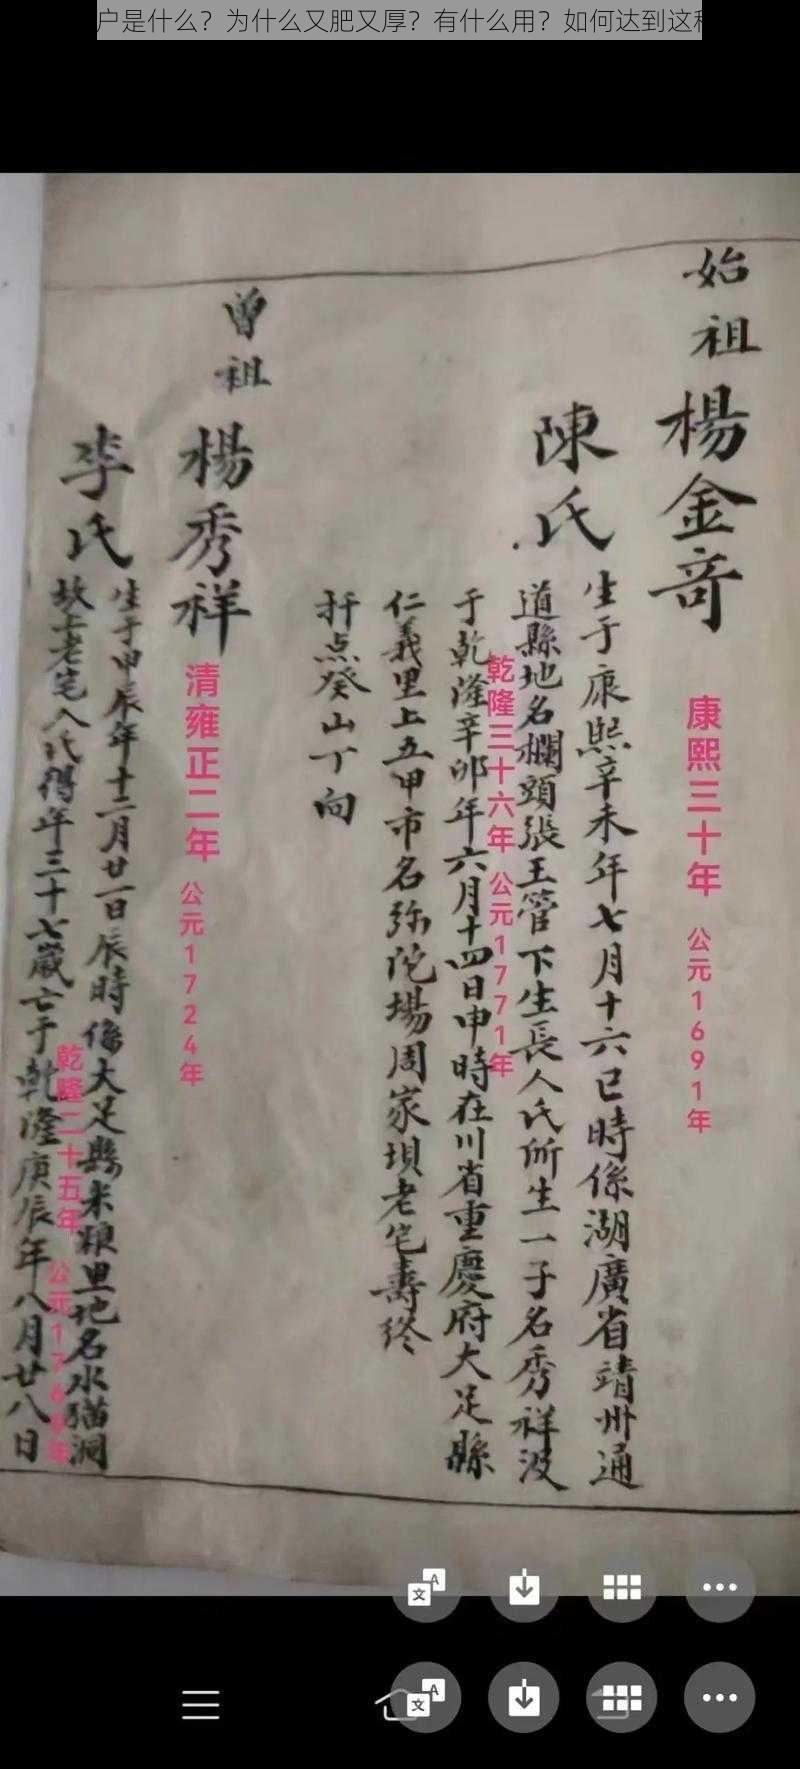 户是什么？为什么又肥又厚？有什么用？如何达到这种
始祖
楊金奇
康熙三十年 公元1691年
陳氏
生于康熙辛未年七月十六巳時係湖廣省靖州通
道縣地名欄頭張王管下生長人氏所生一子名秀祥没
乾隆三十六年 公元1771年
于乾隆辛卯年六月十四日申時在川省重慶府大足縣
仁義里上五甲市名弥陀場周家垻老宅壽终
扦点癸山丁向
曾祖
楊秀祥
清雍正二年 公元1724年
李氏
生于甲辰年十二月廿一日辰時係大足縣米粮里地名水猫洞
乾隆二十五年 公元1760年
故土老宅人氏得年三十七歲亡于乾隆庚辰年八月廿八日